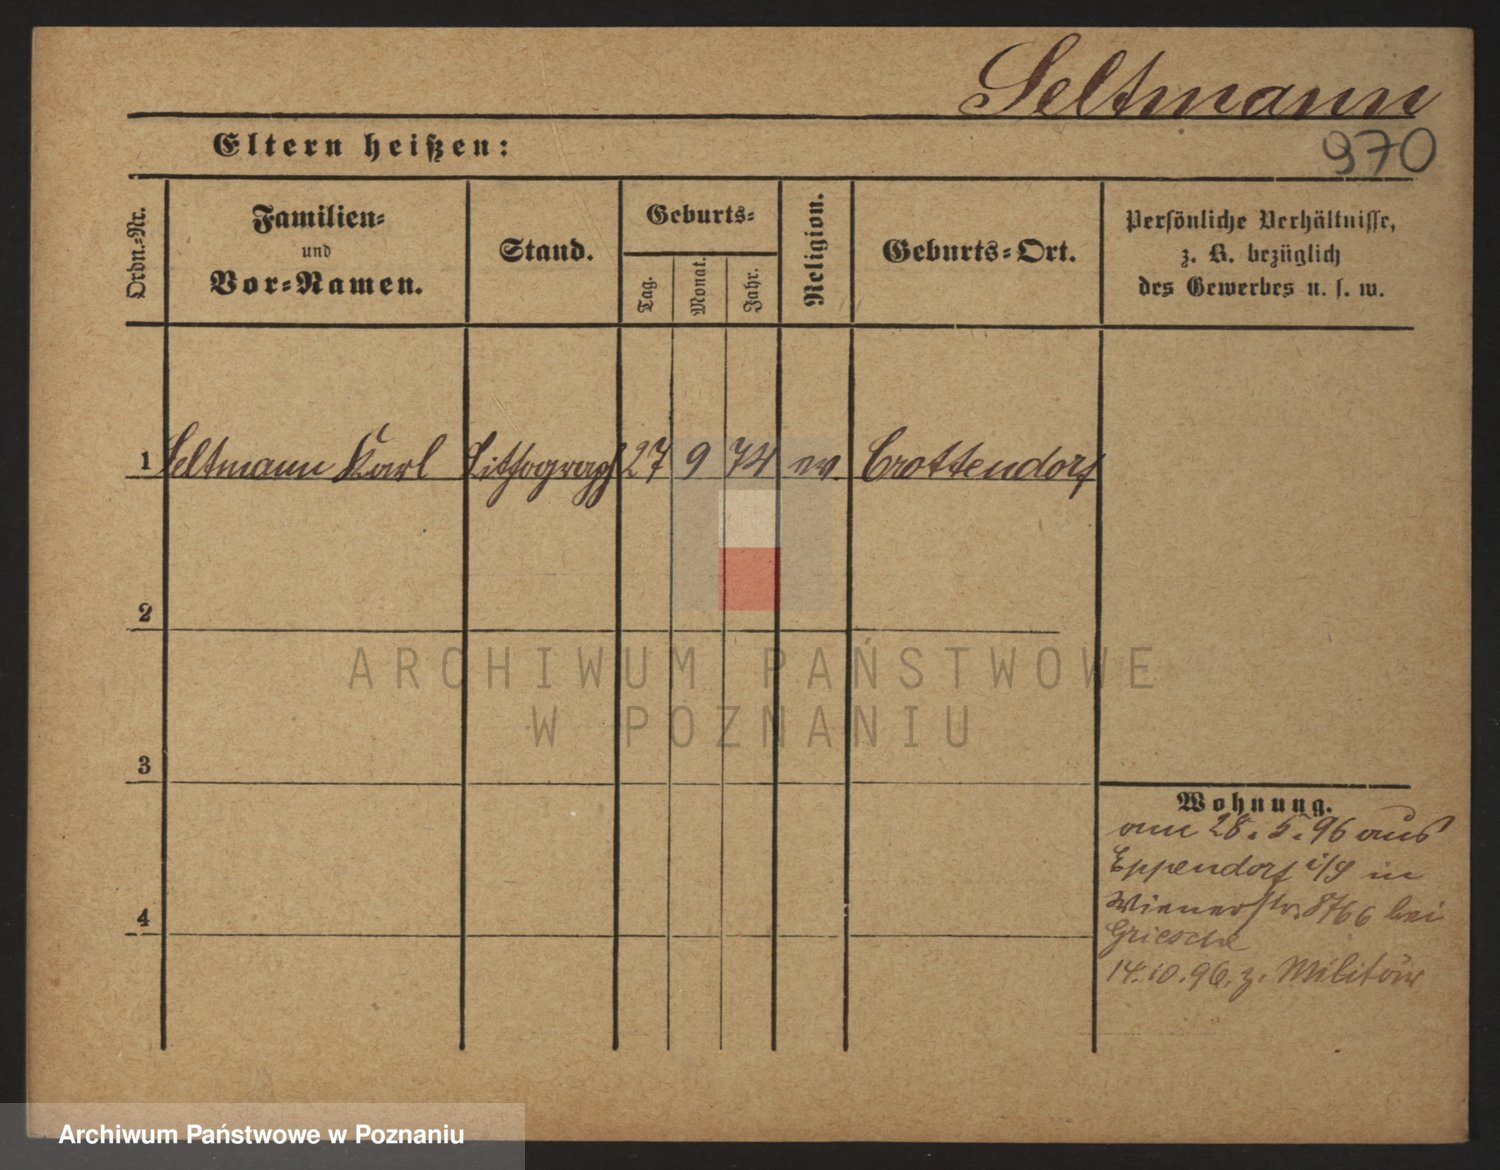 Seltmann
Eltern heißen:
970
Ordn.-Nr.
Familien-
und
Vor-Namen.
Stand.
Geburts-
Tag.
Monat.
Jahr.
Religion.
Geburts-Ort.
Persönliche Verhältnisse,
z. B. bezüglich
des Gewerbes u. s. w.
1 Seltmann Karl Lithograph 27 9 74 ev. Crottendorf
2
3
4
Wohnung.
am 28. 5. 96 aus
Eppendorf i/S in
Wienerstr. bei
Griesche
14.10.96. z. Militär
ARCHIWUM PAŃSTWOWE
W POZNANIU
Archiwum Państwowe w Poznaniu